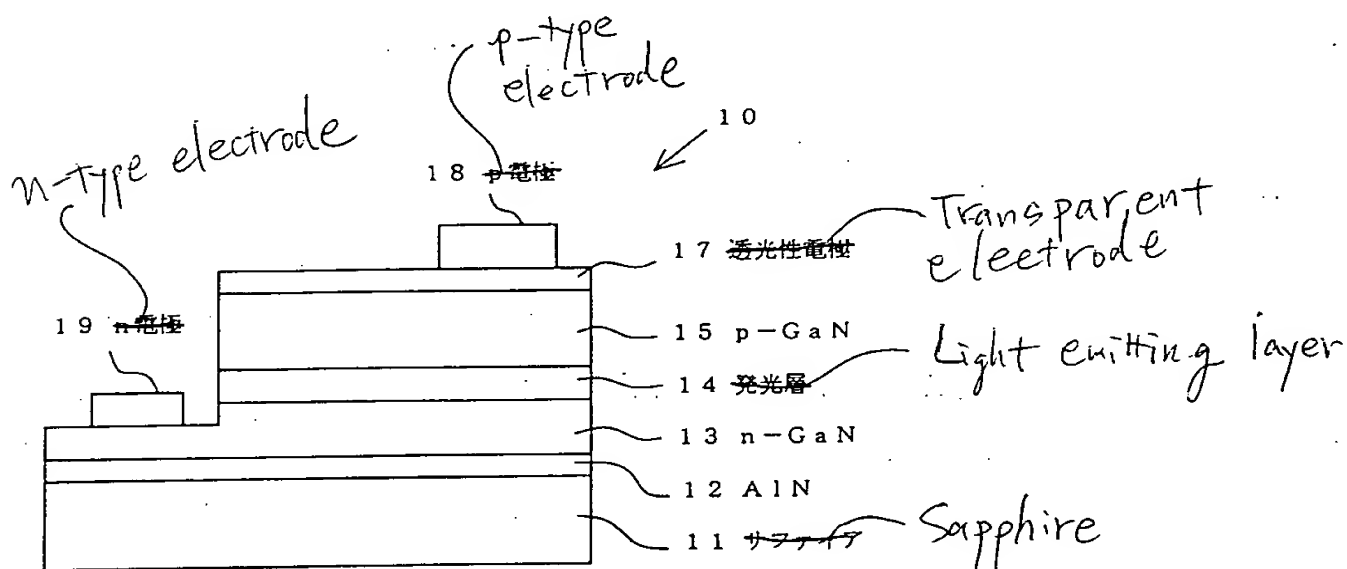 p-type
electrode
n-type electrode
10
18 p電極
Transparent
electrode
17 透光性電極
19 n電極
15 p-GaN
Light emitting layer
14 発光層
13 n-GaN
12 AlN
11 サファイア
Sapphire